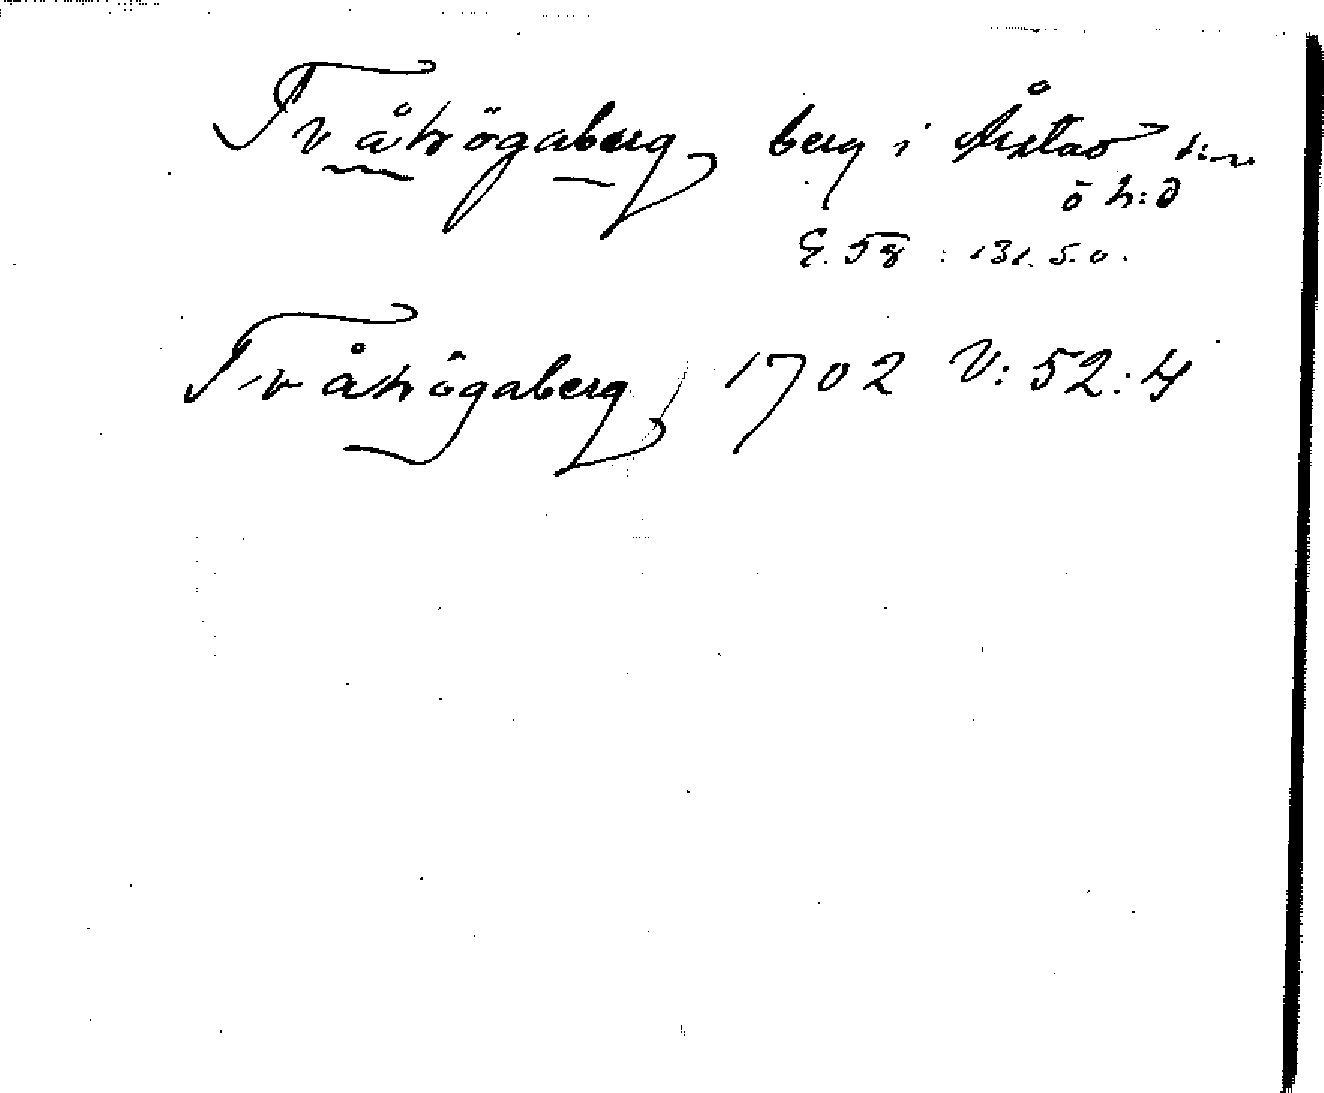 Tvåhögaberg berg i Årstad s:n
ö h:d
E. 58 : 131. 5.0.
Tvåhögaberg 1702 V: 52: 4